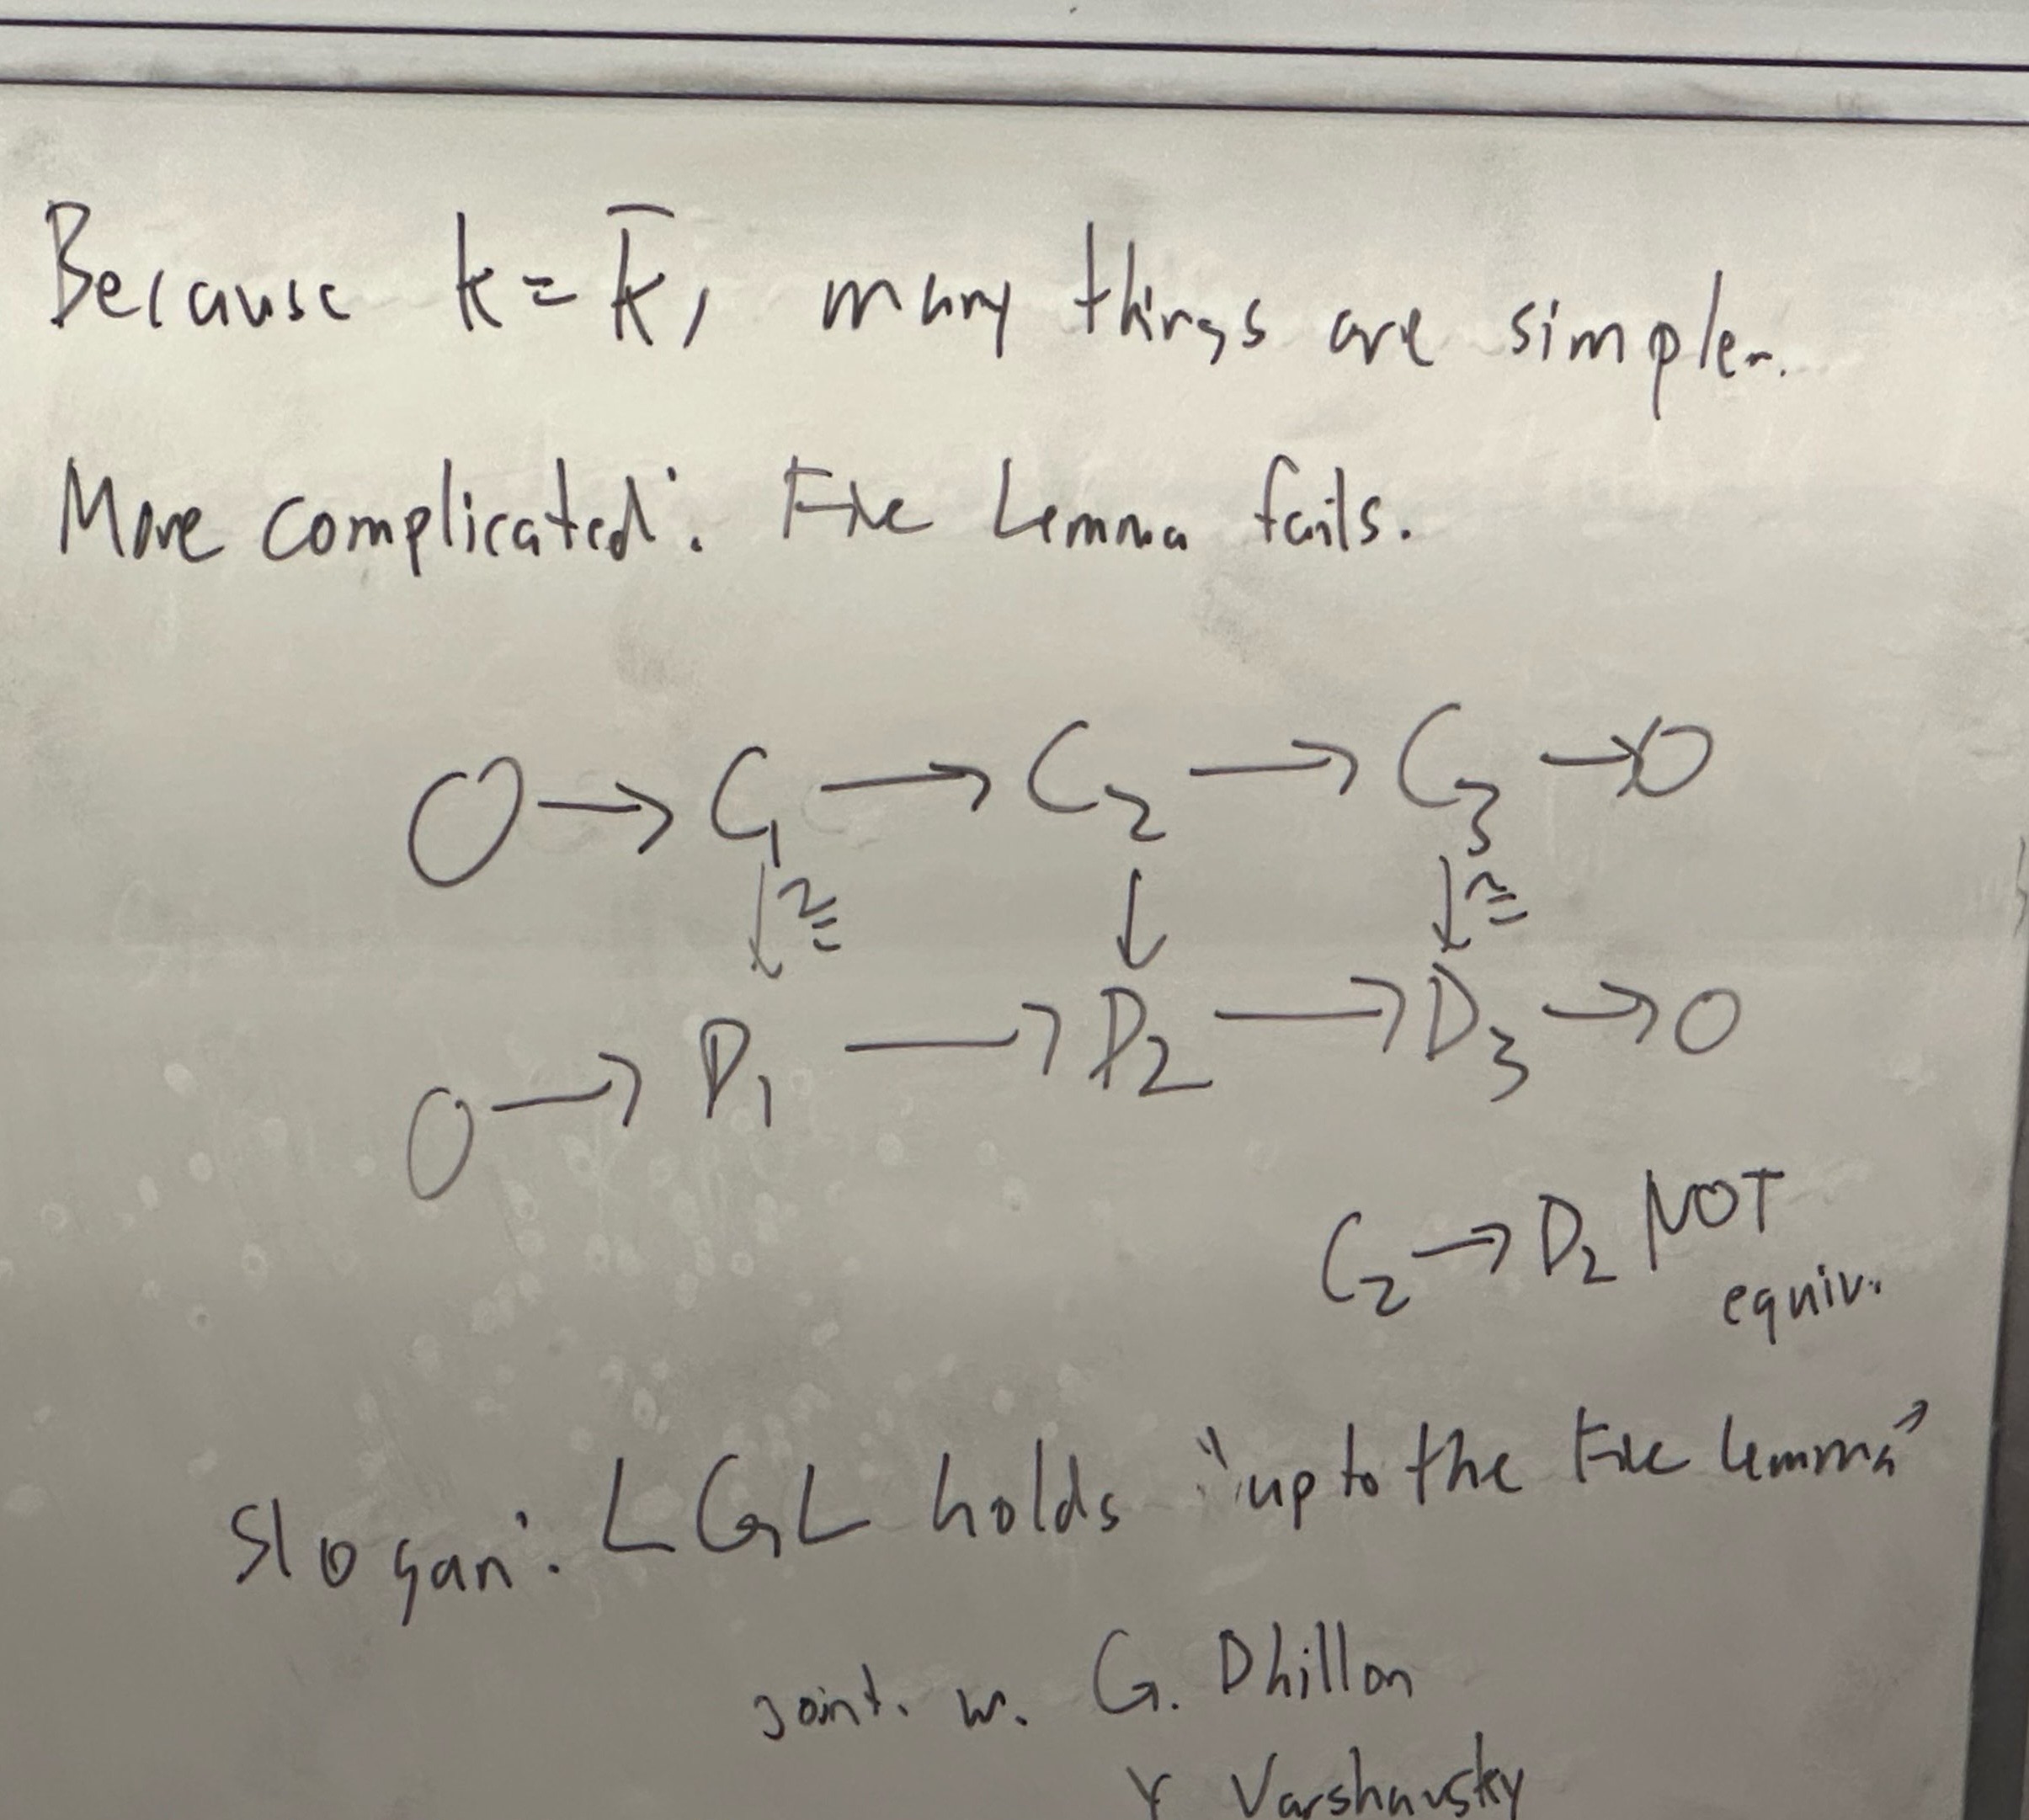 Because k = k̄, many things are simpler.
More complicated: Five Lemma fails.
0 → C₁ → C₂ → C₃ → 0
↓≅ ↓ ↓≅
0 → D₁ → D₂ → D₃ → 0
C₂ → D₂ NOT
equiv.
Slogan: LGL holds "up to the Five Lemma"
joint. w. G. Dhillon
Y Varshavsky